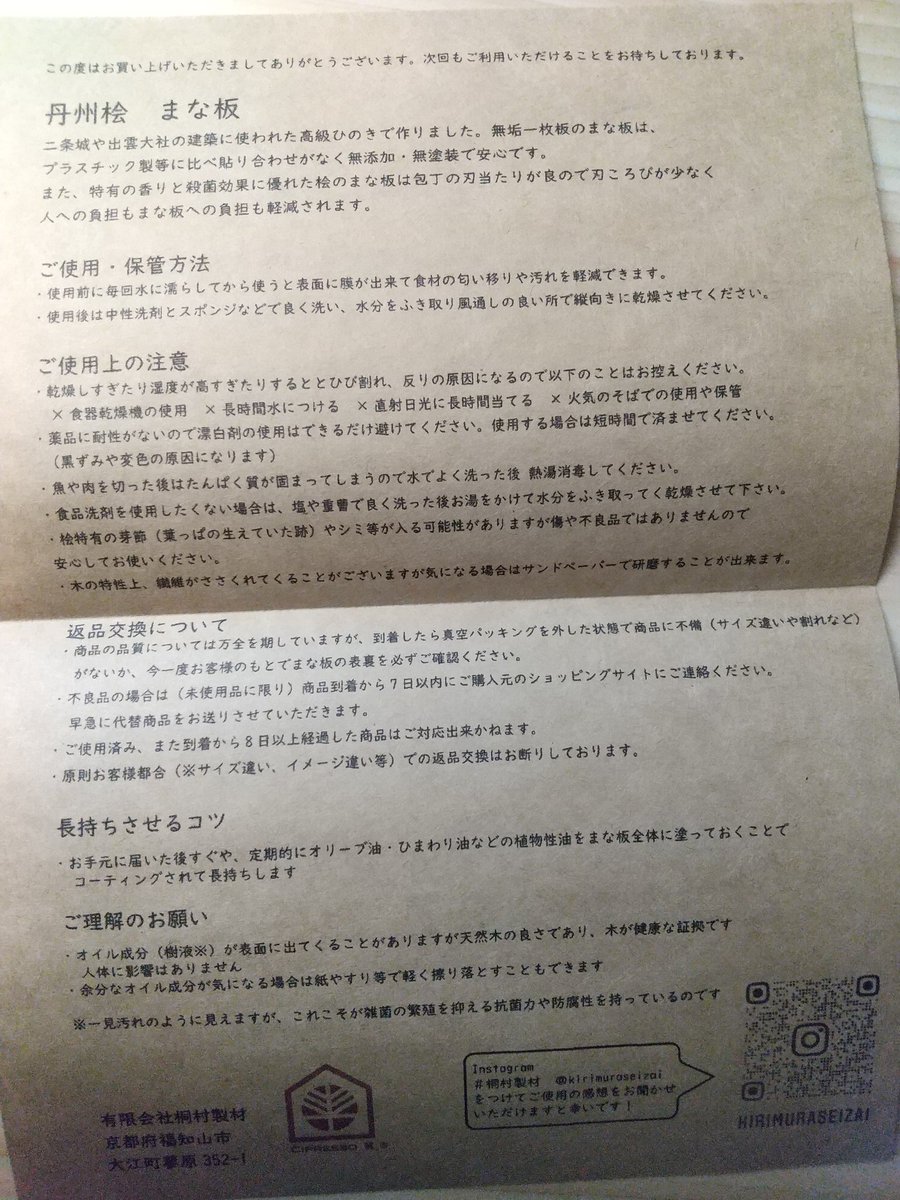 この度はお買い上げいただきましてありがとうございます。次回もご利用いただけることをお待ちしております。
丹州桧　まな板
二条城や出雲大社の建築に使われた高級ひのきで作りました。無垢一枚板のまな板は、
プラスチック製等に比べ貼り合わせがなく無添加・無塗装で安心です。
また、特有の香りと殺菌効果に優れた桧のまな板は包丁の刃当たりが良ので刃ころびが少なく
人への負担もまな板への負担も軽減されます。
ご使用・保管方法
・使用前に毎回水に濡らしてから使うと表面に膜が出来て食材の匂い移りや汚れを軽減できます。
・使用後は中性洗剤とスポンジなどで良く洗い、水分をふき取り風通しの良い所で縦向きに乾燥させてください。
ご使用上の注意
・乾燥しすぎたり湿度が高すぎたりするととひび割れ、反りの原因になるので以下のことはお控えください。
×食器乾燥機の使用　×長時間水につける　×直射日光に長時間当てる　×火気のそばでの使用や保管
・薬品に耐性がないので漂白剤の使用はできるだけ避けてください。使用する場合は短時間で済ませてください。
（黒ずみや変色の原因になります）
・魚や肉を切った後はたんぱく質が固まってしまうので水でよく洗った後 熱湯消毒してください。
・食品洗剤を使用したくない場合は、塩や重曹で良く洗った後お湯をかけて水分をふき取ってく乾燥させて下さい。
・桧特有の芽節（葉っぱの生えていた跡）やシミ等が入る可能性がありますが傷や不良品ではありませんので
安心してお使いください。
・木の特性上、繊維がささくれてくることがございますが気になる場合はサンドペーパーで研磨することが出来ます。
返品交換について
・商品の品質については万全を期していますが、到着したら真空パッキングを外した状態で商品に不備（サイズ違いや割れなど）
がないか、今一度お客様のもとでまな板の表裏を必ずご確認ください。
・不良品の場合は（未使用品に限り）商品到着から7日以内にご購入元のショッピングサイトにご連絡ください。
早急に代替商品をお送りさせていただきます。
・ご使用済み、また到着から8日以上経過した商品はご対応出来かねます。
・原則お客様都合（※サイズ違い、イメージ違い等）での返品交換はお断りしております。
長持ちさせるコツ
・お手元に届いた後すぐや、定期的にオリーブ油・ひまわり油などの植物性油をまな板全体に塗っておくことで
コーティングされて長持ちします
ご理解のお願い
・オイル成分（樹液※）が表面に出てくることがありますが天然木の良さであり、木が健康な証拠です
人体に影響はありません
・余分なオイル成分が気になる場合は紙やすり等で軽く擦り落とすこともできます
※一見汚れのように見えますが、これこそが雑菌の繁殖を抑える抗菌力や防腐性を持っているのです
有限会社桐村製材
京都府福知山市
大江町蓼原 352-1
CIPRESSO
Instagram
#桐村製材　@kirimuraseizai
をつけてご使用の感想をお聞かせ
いただけますと幸いです！
KIRIMURASEIZAI